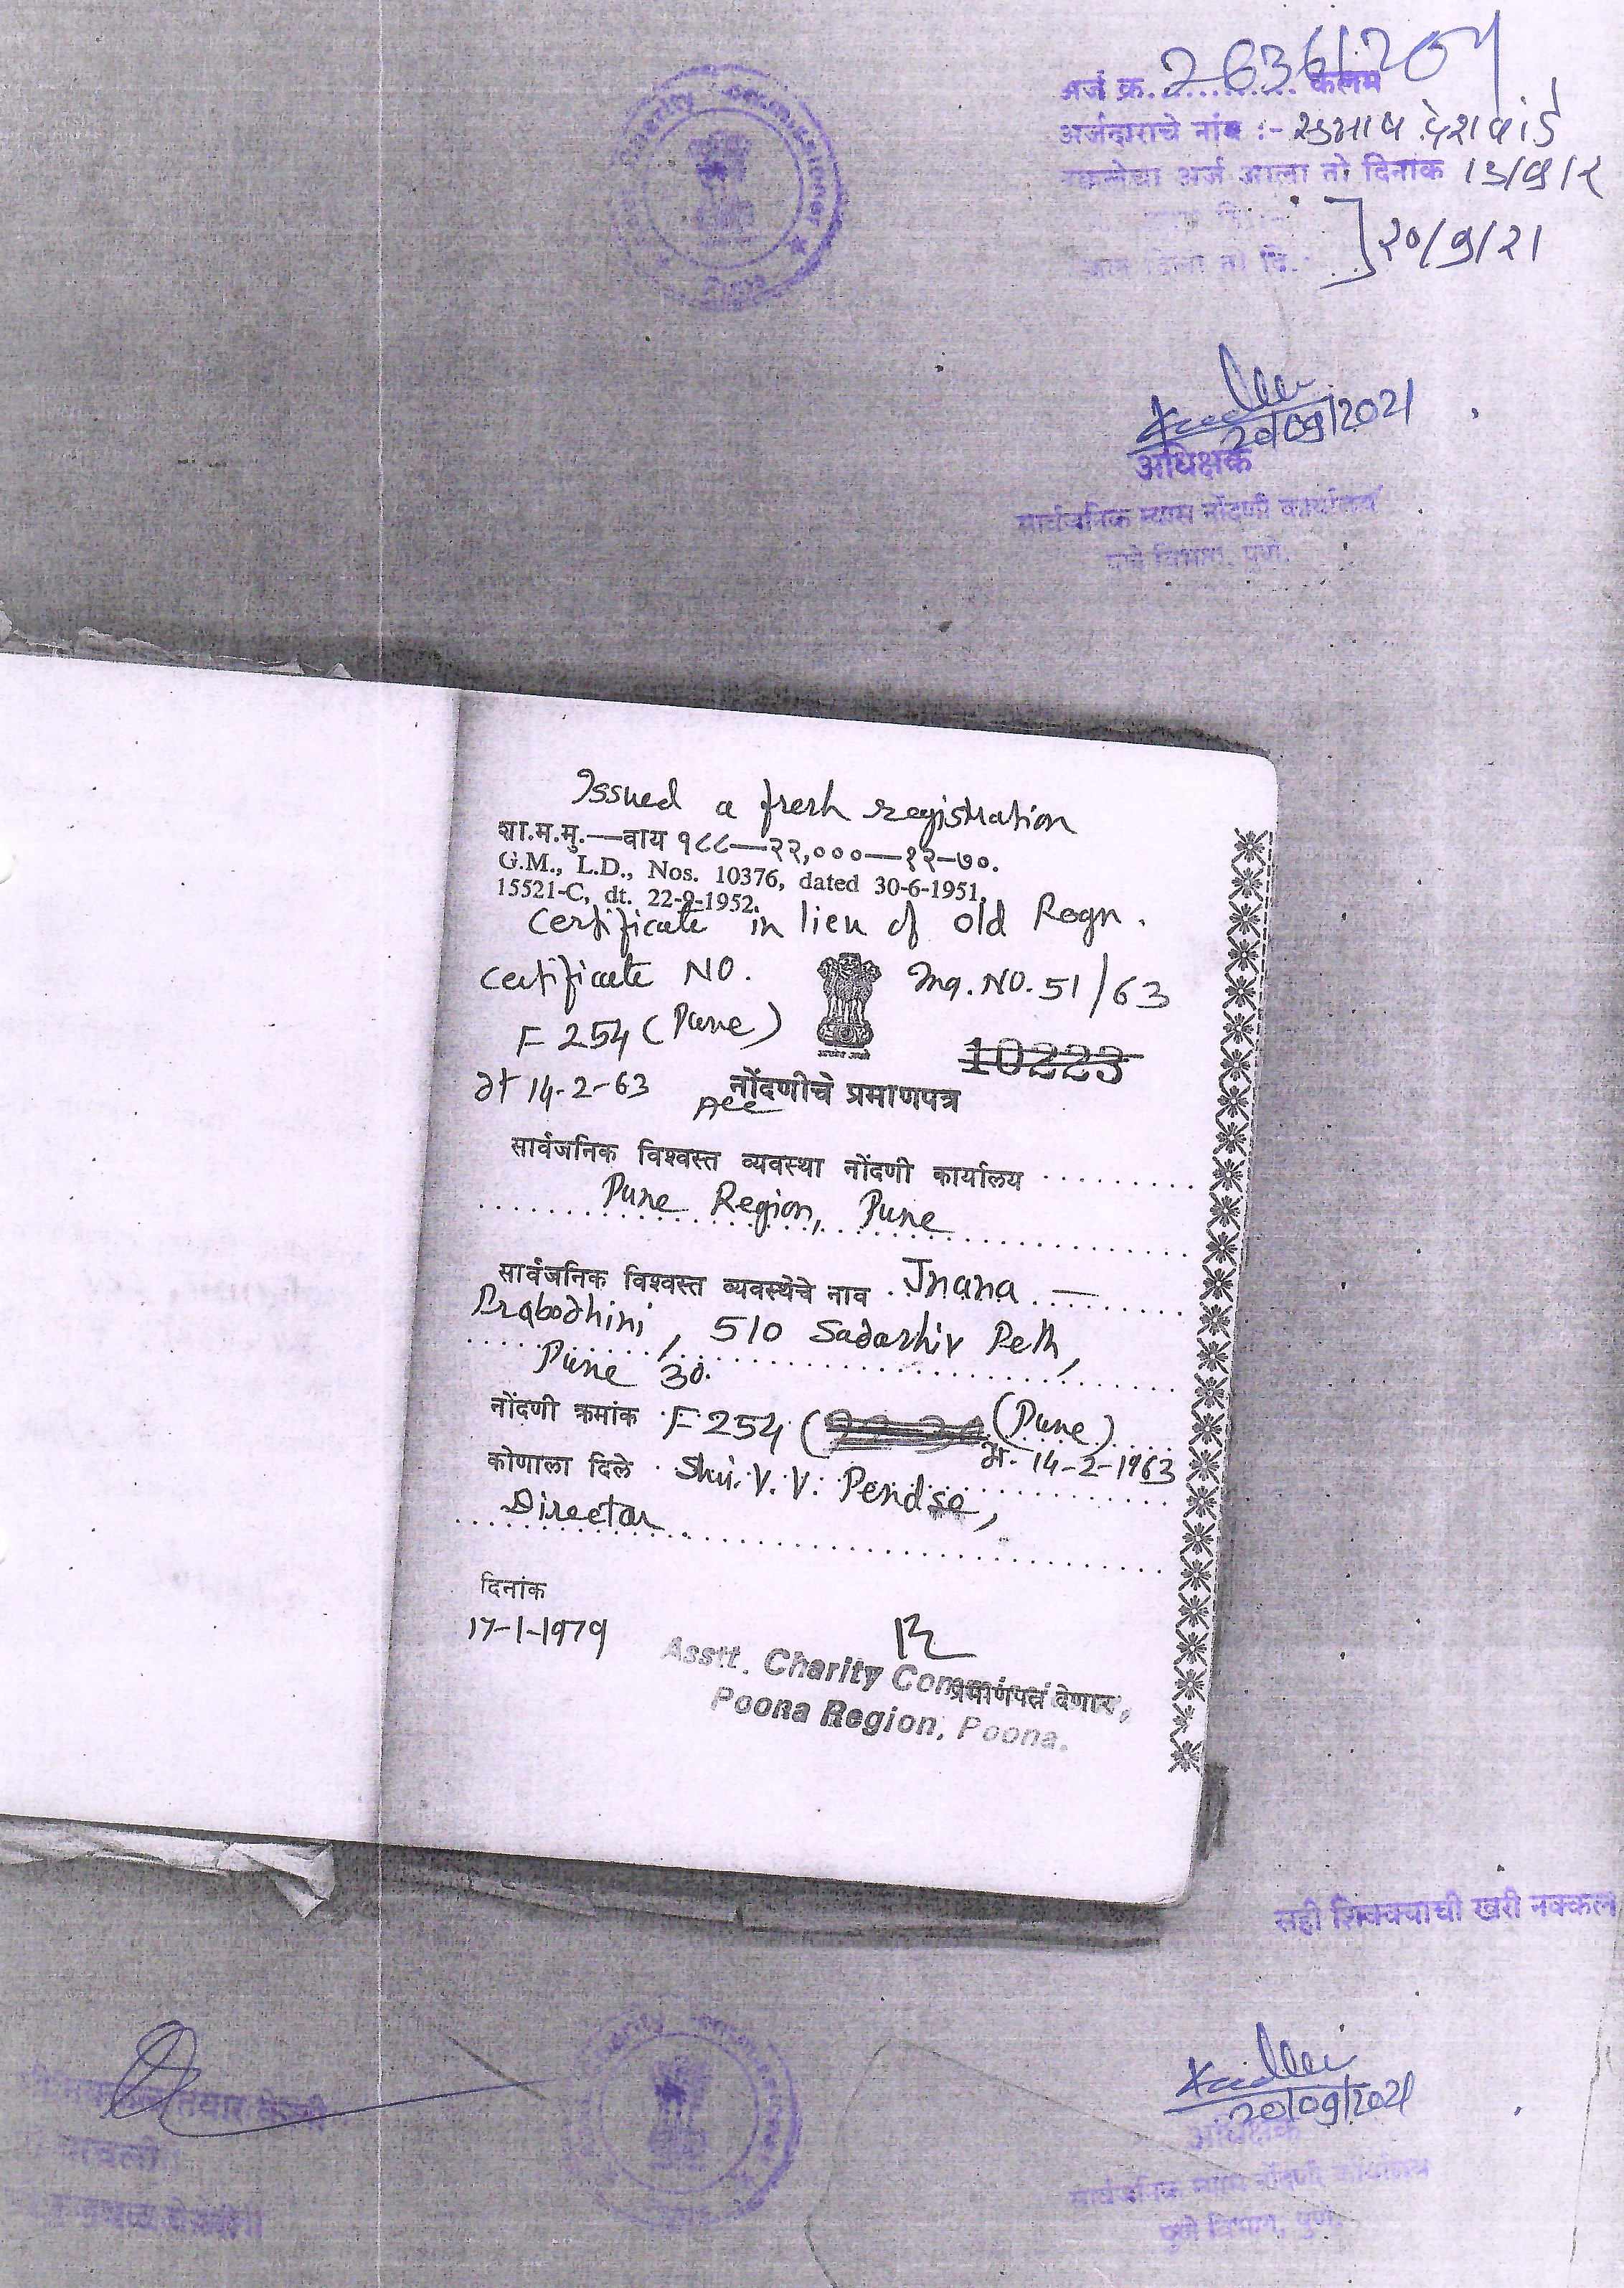 अर्ज क्र. कलम
अर्जदाराचे नांव :- सुभाष देशपांडे
नकलेचा अर्ज आला तो दिनांक
२०/९/२१
Charity Commissioner
20/09/2021
अधिक्षक
सार्वजनिक न्यास नोंदणी कार्यालय
पुणे विभाग, पुणे.
Issued a fresh registration
शा.म.मु.—वाय १८८—२२,०००—१२-७०.
G.M., L.D., Nos. 10376, dated 30-6-1951,
15521-C, dt. 22-9-1952.
certificate in lieu of old Regn.
certificate NO. Inq. NO. 51/63
F 254 (Pune)
10223
dt 14-2-63
नोंदणीचे प्रमाणपत्र
सार्वजनिक विश्वस्त व्यवस्था नोंदणी कार्यालय
Pune Region, Pune
सार्वजनिक विश्वस्त व्यवस्थेचे नाव Jnana —
Prabodhini, 510 Sadashiv Peth,
Pune 30.
नोंदणी क्रमांक F 254 (Pune)
dt. 14-2-1963
कोणाला दिले Shri. V. V. Pendse,
Director
दिनांक
17-1-1979
Asstt. Charity
प्रमाणपत्र देणार
Poona Region, Poona.
सही शिक्क्याची खरी नक्कल
20/09/2021
अधिक्षक
सार्वजनिक न्यास नोंदणी कार्यालय
पुणे विभाग, पुणे.